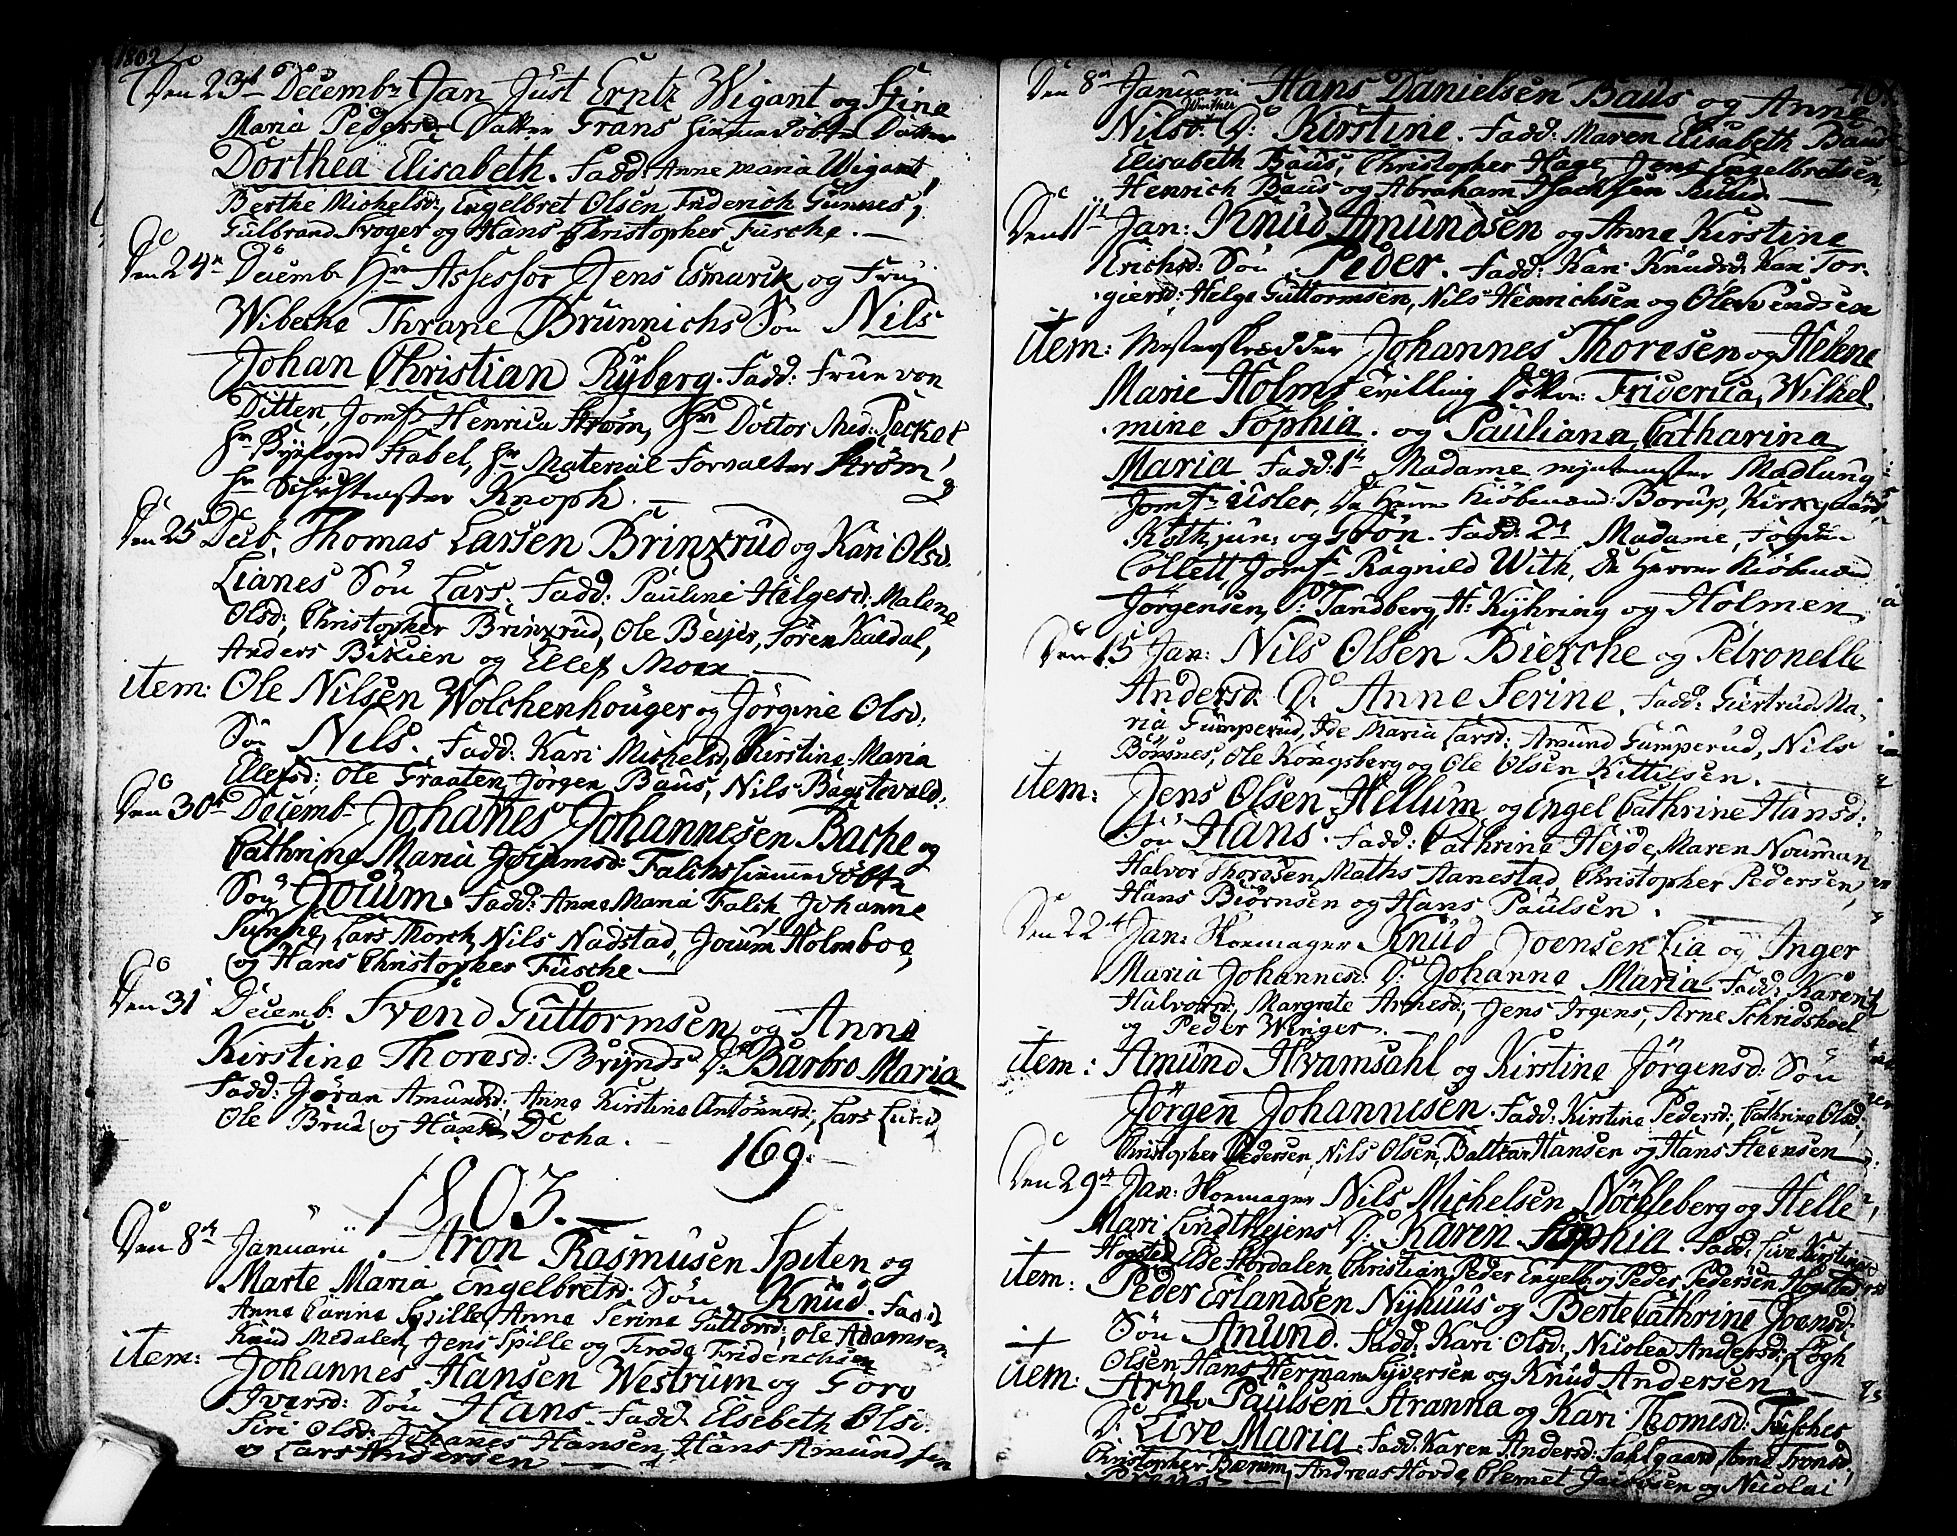 1802
Den 23de Decembr Jan Just Erntz Wigant og Stine
Maria Pedersd: Datter Grans hiemmedöbte Datter
Dorthea Elisabeth. Fadd: Anne Maria Wigant,
Berthe Michelsd:, Engelbret Olsen, Friderich Gunnes,
Gulbrand Svoger og Hans Christopher Fusche. —
Den 24de Decemb: Hr Assessor Jens Esmark og Frue
Wibeche Thrane Brünnichs Sön Nils
Johan Christian Ryberg. Fadd: Frue von
Ditten, Jomf: Henrica Strøm, Hr Doctor Med: Peckel,
Hr Byefoged Stabel, Hr Material Forvalter Strøm, og
Hr Schichtmester Knoph. —
Den 25 Decb. Thomas Larsen Brinxrud og Kari Olsd.
Lianes Sön Lars. Fadd: Pauline Helgesd: Malene
Olsd:, Christopher Brinxrud, Ole Beijer, Søren Kaldal,
Anders Bikien og Ellef Moen —
item: Ole Nilsen Wolchenhouger og Jörgine Olsd:
Sön Nils. Fadd: Kari Michelsd, Kirstine Maria
Ellefsd:, Ole Graaten, Jørgen Baus, Nils Bagstevald:
Den 30te Decemb: Johanes Johannesen Bache og
Cathrine Maria Joramsd: Falchs hiemmedöbte
Sön Joium. Fadd: Anne Maria Falch, Johanne
Sunne, Lars Morch, Nils Nadstad, Joium Holmboe,
og Hans Christopher Fusche —
Den 31 Decemb: Svend Guttormsen og Anne
Kirstine Thoresd: Brynds D: Barbro Maria
Fadd: Jöran Amundsd:, Anne Kirstine Antönnesd:, Lars Lurud
Ole Brud og Hans Docha. —
169. —
1803. —
Den 8de Januarii Aron Rasmusen Spiten og
Marte Maria Engelbretsd: Sön Knud. Fadd
Anne Carine Spille, Anne Serine Guttorsd:, Ole Adamsen,
Knud Medalen, Jens Spille og Frode Friderichsen
item: Johannes Hansen Westrum og Goro
Iversd: Sön Hans. Fadd: Elsebeth Olsd:
Siri Olsd: Johanes Hansen, Hans Amundsen
og Lars Andersen —
Den 8de Januarii Hans Danielsen Baus og Anne
Nilsd: Winther D: Kirstine. Fadd: Maren Elisabeth Baus
Elisabeth Baus, Christopher Hage, Jens Engelbretsen,
Henrich Baus og Abraham Isachsen Rulud —
Den 11te Jan: Knud Amundsen og Anne Kirstine
Erichsd: Sön Peder. Fadd: Kari Knudsd: Kari Tor-
giersd: Helge Guttormsen, Nils Henrichsen og Ole Svendsen
item: Mesterskrædder Johannes Thoresen og Helene
Marie Holms tvilling Döttre: Friderica, Wilhel
mine Sophia. og Pauliana, Catharina
Maria Fadd: 1te Madame myntmester Madlung
Jomfr: Usler, De Herrer Kiöbmænd: Borup, Kirkgaard,
Roth jun: og Grön. Fadd: 2de Madame, Foged-
Collett, Jomf: Ragnild With, De Herrer Kiöbmænd
Jörgensen, P: Tandberg, H: Kyhring og Holmen
Den 15 Jan: Nils Olsen Bierche og Petronelle
Andersd: D: Anne Serine. Fadd: Giertrud Ma-
ria Gumperud, Ide Maria Larsd: Amund Gumperud, Nils
Börsnes, Ole Kongsberg og Ole Olsen Kittilsen. —
item: Jens Olsen Hellum og Engel Cathrine Hansd:
Sön Hans. Fadd: Cathrine Hejde, Maren Nouman
Halvor Thoresen, Maths Aanestad, Christopher Pedersen,
Hans Biörnsen og Hans Paulsen. —
Den 22de Jan: Skomager Knud Joensen Lia og Inger
Maria Johannesd: D: Johanne Maria Fadd: Karen
Halvorsd:, Margrete Arnesd:, Jens Irgens, Arne Schridshoel
og Peder Winger. —
item: Amund Hvamsahl og Kirstine Jörgensd: Sön
Jörgen Johannesen. Fadd: Kirstine Pedersd:, Cathrine Olsd:
Christopher Pedersen, Nils Olsen, Baltzar Hansen og Hans Steensen
Den 29de Jan: Skomager Nils Michelsen Nöchleberg og Helle
Mari Lindthejens D: Karen Sophia. Fadd: Live Kirstine
Hogsted, Else Skordalen, Christian, Peder Engell og Peder Pedersen Hogstad
item: Peder Erlandsen Nyhuus og Berte Cathrine Joensd:
Sön Anund. Fadd: Kari Olsd:, Nicolea Andersd: Logh
Olsen Hans Herman Syversen og Knud Andersen —
item: Arne Paulsen Aranna og Kari Thomesd: Fusches
D: Live Maria Fadd: Karen Andersd: Sahlgaard, Anne Fronsd:
Christopher Bærum, Andreas Hovde, Clemet Jacobsen og Nicolai